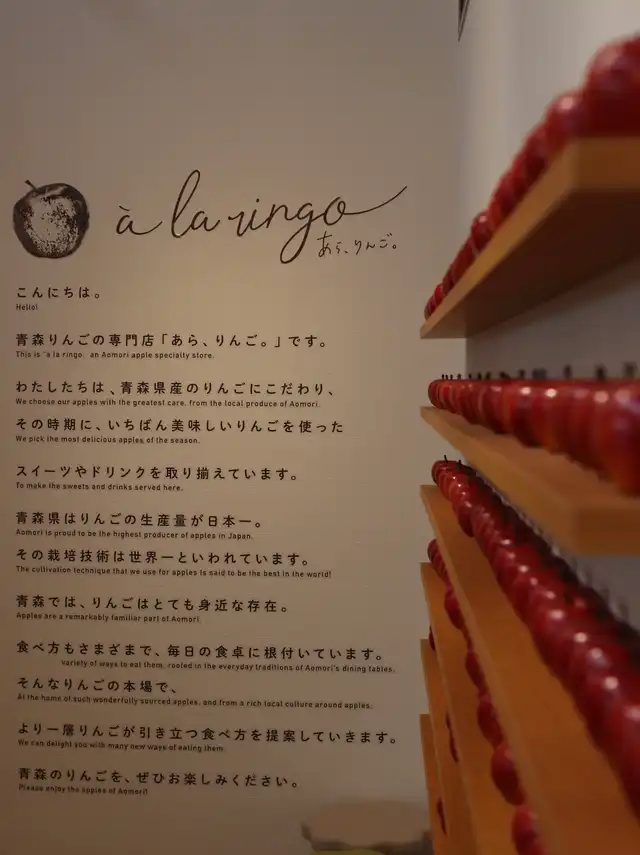 à la ringo
あら、りんご。
こんにちは。
Hello!
青森りんごの専門店「あら、りんご。」です。
This is "a la ringo, an Aomori apple specialty store.
わたしたちは、青森県産のりんごにこだわり、
We choose our apples with the greatest care, from the local produce of Aomori.
その時期に、いちばん美味しいりんごを使った
We pick the most delicious apples of the season.
スイーツやドリンクを取り揃えています。
To make the sweets and drinks served here.
青森県はりんごの生産量が日本一。
Aomori is proud to be the highest producer of apples in Japan.
その栽培技術は世界一といわれています。
The cultivation technique that we use for apples is said to be the best in the world!
青森では、りんごはとても身近な存在。
Apples are a remarkably familiar part of Aomori
食べ方もさまざまで、毎日の食卓に根付いています。
variety of ways to eat them, rooted in the everyday traditions of Aomori's dining tables.
そんなりんごの本場で、
At the home of such wonderfully sourced apples, and from a rich local culture around apples.
より一層りんごが引き立つ食べ方を提案していきます。
We can delight you with many new ways of eating them.
青森のりんごを、ぜひお楽しみください。
Please enjoy the apples of Aomori!